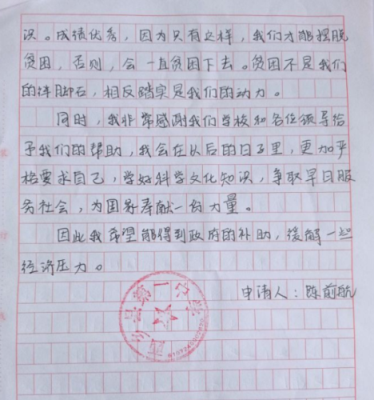 识。成绩优秀，因为只有这样，我们才能摆脱
贫困，否则，会一直贫困下去。贫困不是我们
的绊脚石，相反踏实是我们的动力。
同时，我非常感谢我们学校和各位领导给
予我们的帮助，我会在以后的日子里，更加严
格要求自己，学好科学文化知识，争取早日服
务社会，为国家奉献一份力量。
因此我希望能得到政府的补助，缓解一些
经济压力。
申请人：陈前航
县第一中学